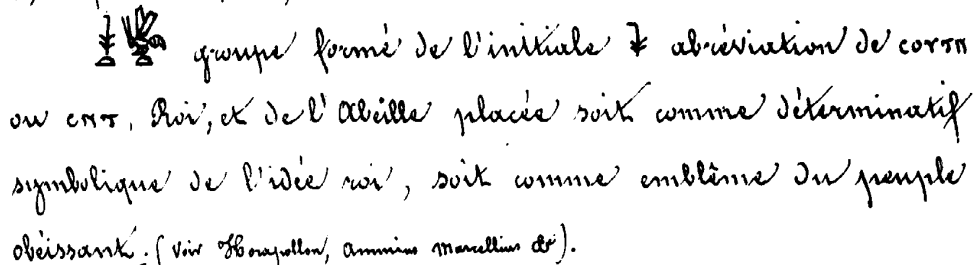 𓇓𓏏𓆤𓏏 groupe formé de l'initiale 𓇓 abréviation de ⲥⲟⲩⲧⲛ
ou ⲥⲛⲧ, Roi, et de l'Abeille placée soit comme déterminatif
symbolique de l'idée roi, soit comme emblême du peuple
obéissant. (Voir Horapollon, Ammien Marcellin &c).